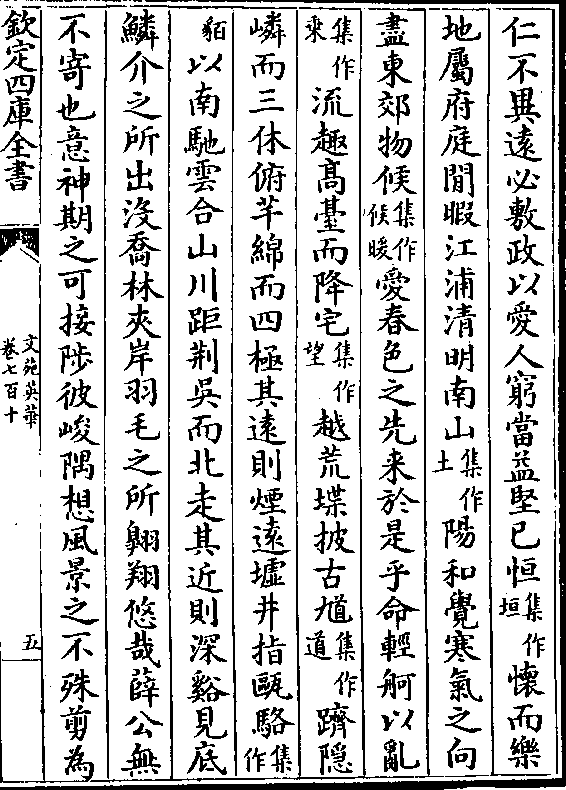 仁不異遠必敷政以愛人窮當益堅已恒集作垣懷而樂
地屬府庭閒暇江浦清明南山集作土陽和覺寒氣之向
盡東郊物候集作候暖愛春色之先来於是乎命輕舸以亂
集作乗流趣髙臺而降宅集作望越荒堞披古馗集作道躋隠
嶙而三休俯芊綿而四極其遠則煙遠墟井指甌駱集作
貊以南馳雲合山川距荆吳而北走其近則深谿見底
鱗介之所出沒喬林夾岸羽毛之所翺翔悠哉薛公無
不寄也意神期之可接陟彼峻隅想風景之不殊剪為
欽定四庫全書
文苑英華
卷七百十
五